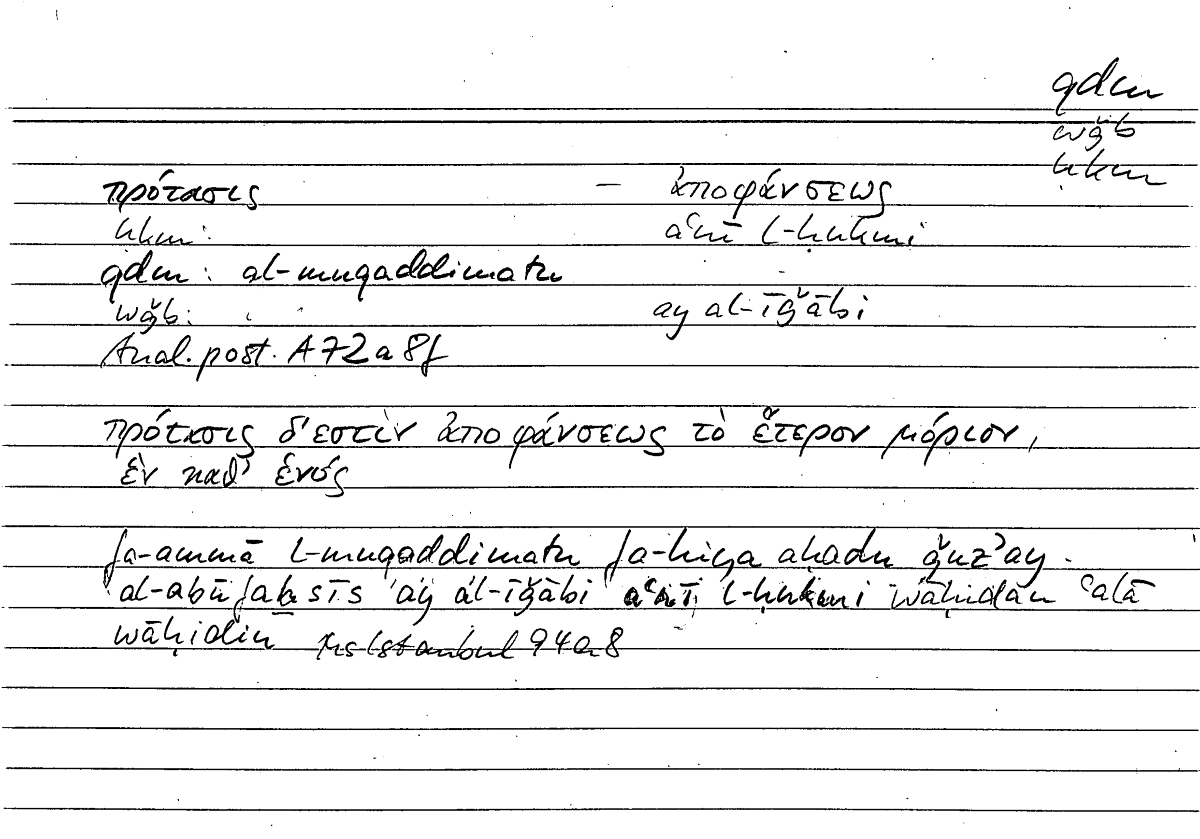 qdm
wǧb
ḥkm
πρότασις – ἀποφάνσεως
ḥkm: aʿnī l-ḥukmi
qdm: al-muqaddimatu
wǧb: ay al-īǧābi
Anal. post. A 72 a 8f
πρότασις δ'εστὶν ἀποφάνσεως τὸ ἕτερον μόριον,
ἓν καθ' ἑνός
fa-ammā l-muqaddimatu fa-hiya aḥadu ǧuzʾay
al-abūfansīs ay al-īǧābi aʿnī l-ḥukmi wāḥidan ʿalā
wāḥidin Ms Istanbul 94a8